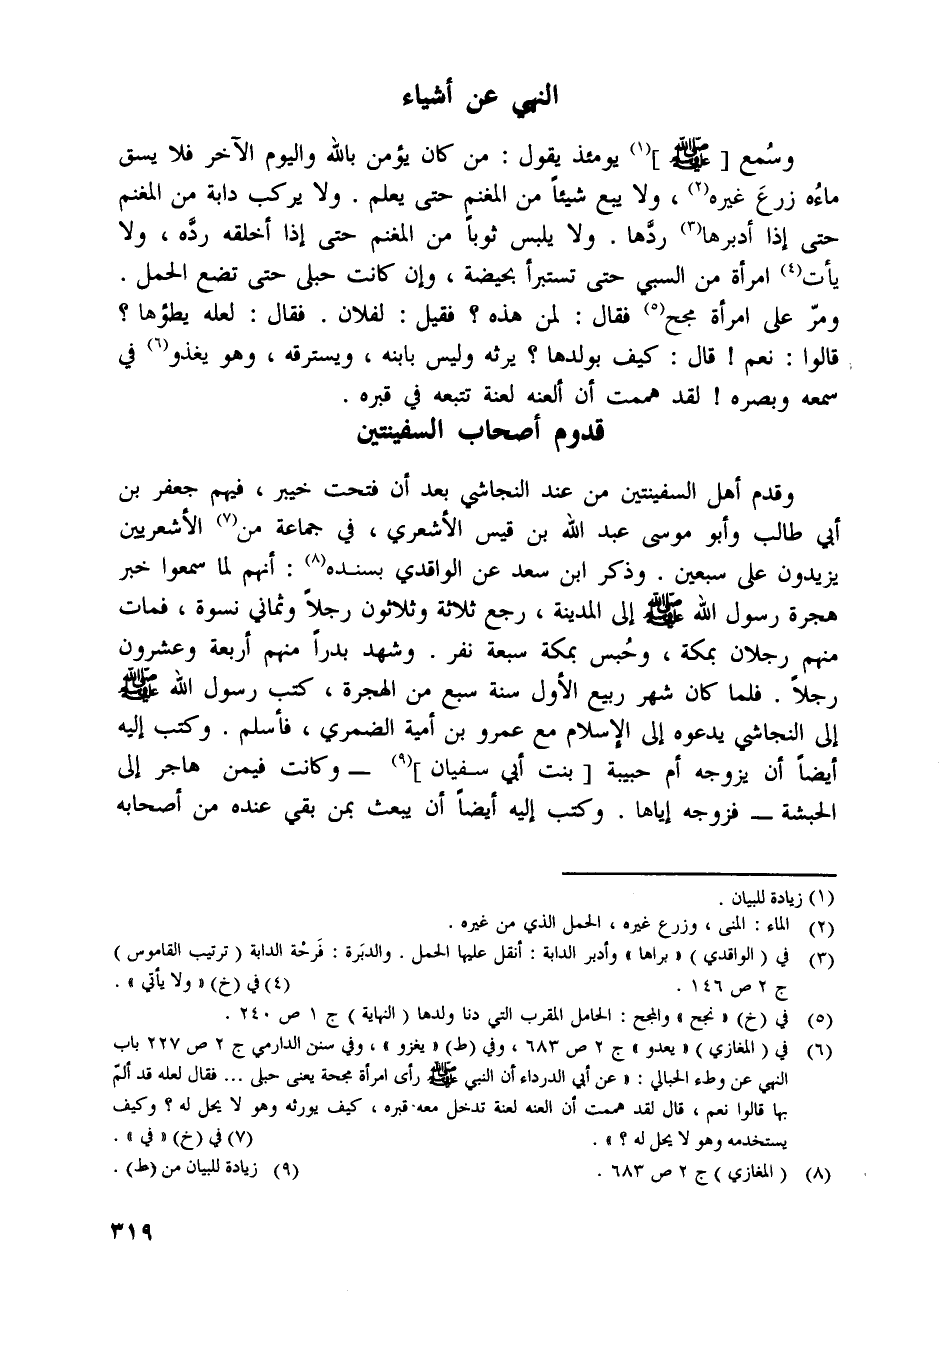 النهي عن أشياء
وسُمع [ ﷺ ]⁽¹⁾ يومئذ يقول : من كان يؤمن بالله واليوم الآخر فلا يسق
ماءُه زرعَ غيره⁽٢⁾ ، ولا يبع شيئاً من المغنم حتى يعلم . ولا يركب دابة من المغنم
حتى إذا أدبرها⁽٣⁾ ردَّها . ولا يلبس ثوباً من المغنم حتى إذا أخلقه ردَّه ، ولا
يأت⁽٤⁾ امرأة من السبي حتى تستبرأ بحيضة ، وإن كانت حبلى حتى تضع الحمل .
ومرّ على امرأة مجح⁽٥⁾ فقال : لمن هذه ؟ فقيل : لفلان . فقال : لعله يطؤها ؟
قالوا : نعم ! قال : كيف بولدها ؟ يرثه وليس بابنه ، ويسترقه ، وهو يغذو⁽٦⁾ في
سمعه وبصره ! لقد هممت أن ألعنه لعنة تتبعه في قبره .
قدوم أصحاب السفينتين
وقدم أهل السفينتين من عند النجاشي بعد أن فتحت خيبر ، فيهم جعفر بن
أبي طالب وأبو موسى عبد الله بن قيس الأشعري ، في جماعة من⁽٧⁾ الأشعريين
يزيدون على سبعين . وذكر ابن سعد عن الواقدي بسنده⁽٨⁾ : أنهم لما سمعوا خبر
هجرة رسول الله ﷺ إلى المدينة ، رجع ثلاثة وثلاثون رجلاً وثماني نسوة ، فمات
منهم رجلان بمكة ، وحُبس بمكة سبعة نفر . وشهد بدراً منهم أربعة وعشرون
رجلاً . فلما كان شهر ربيع الأول سنة سبع من الهجرة ، كتب رسول الله ﷺ
إلى النجاشي يدعوه إلى الإسلام مع عمرو بن أمية الضمري ، فأسلم . وكتب إليه
أيضاً أن يزوجه أم حبيبة [ بنت أبي سفيان ]⁽٩⁾ — وكانت فيمن هاجر إلى
الحبشة — فزوجه إياها . وكتب إليه أيضاً أن يبعث بمن بقي عنده من أصحابه
(١) زيادة للبيان .
(٢) الماء : المنى ، وزرع غيره ، الحمل الذي من غيره .
(٣) في ( الواقدي ) « براها » وأدبر الدابة : أثقل عليها الحمل . والدبَرة : قَرحْة الدابة ( ترتيب القاموس )
ج ٢ ص ١٤٦ . (٤) في (خ) « ولا يأتي » .
(٥) في (خ) « نجح » والمجح : الحامل المقرب التي دنا ولدها ( النهاية ) ج ١ ص ٢٤٠ .
(٦) في ( المغازي ) « يعدو » ج ٢ ص ٦٨٣ ، وفي (ط) « يغزو » ، وفي سنن الدارمي ج ٢ ص ٢٢٧ باب
النهي عن وطء الحبالي : « عن أبي الدرداء أن النبي ﷺ رأى امرأة مجحة يعنى حبلى ... فقال لعله قد ألمّ
بها قالوا نعم ، قال لقد هممت أن العنه لعنة تدخل معه قبره ، كيف يورثه وهو لا يحل له ؟ وكيف
يستخدمه وهو لا يحل له ؟ » . (٧) في (خ) « في » .
(٨) ( المغازي ) ج ٢ ص ٦٨٣ . (٩) زيادة للبيان من (ط) .
٣١٩